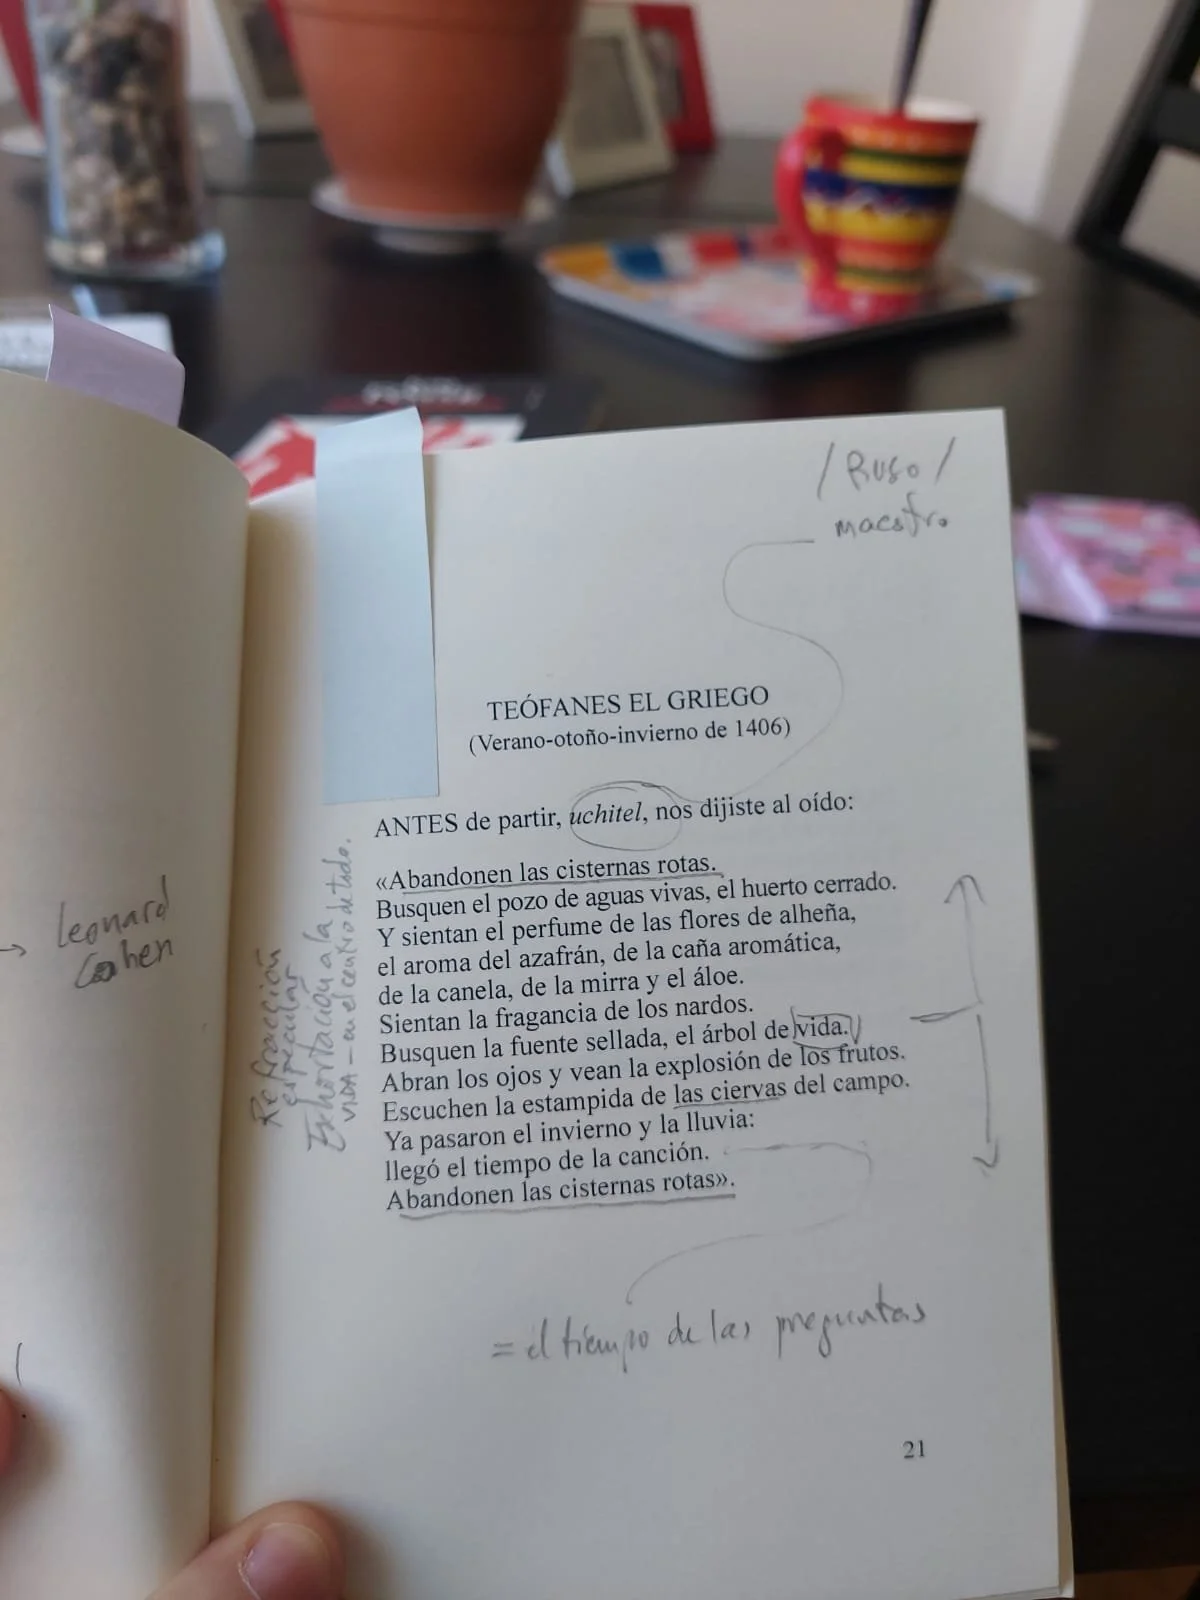 / Ruso /
maestro
TEÓFANES EL GRIEGO
(Verano-otoño-invierno de 1406)
ANTES de partir, uchitel, nos dijiste al oído:
«Abandonen las cisternas rotas.
Busquen el pozo de aguas vivas, el huerto cerrado.
Y sientan el perfume de las flores de alheña,
el aroma del azafrán, de la caña aromática,
de la canela, de la mirra y el áloe.
Sientan la fragancia de los nardos.
Busquen la fuente sellada, el árbol de vida.
Abran los ojos y vean la explosión de los frutos.
Escuchen la estampida de las ciervas del campo.
Ya pasaron el invierno y la lluvia:
llegó el tiempo de la canción.
Abandonen las cisternas rotas».
= el tiempo de las preguntas
21
→ leonard
Cohen
Refracción
especular
Exhortación a la
VIDA - en el centro de todo.